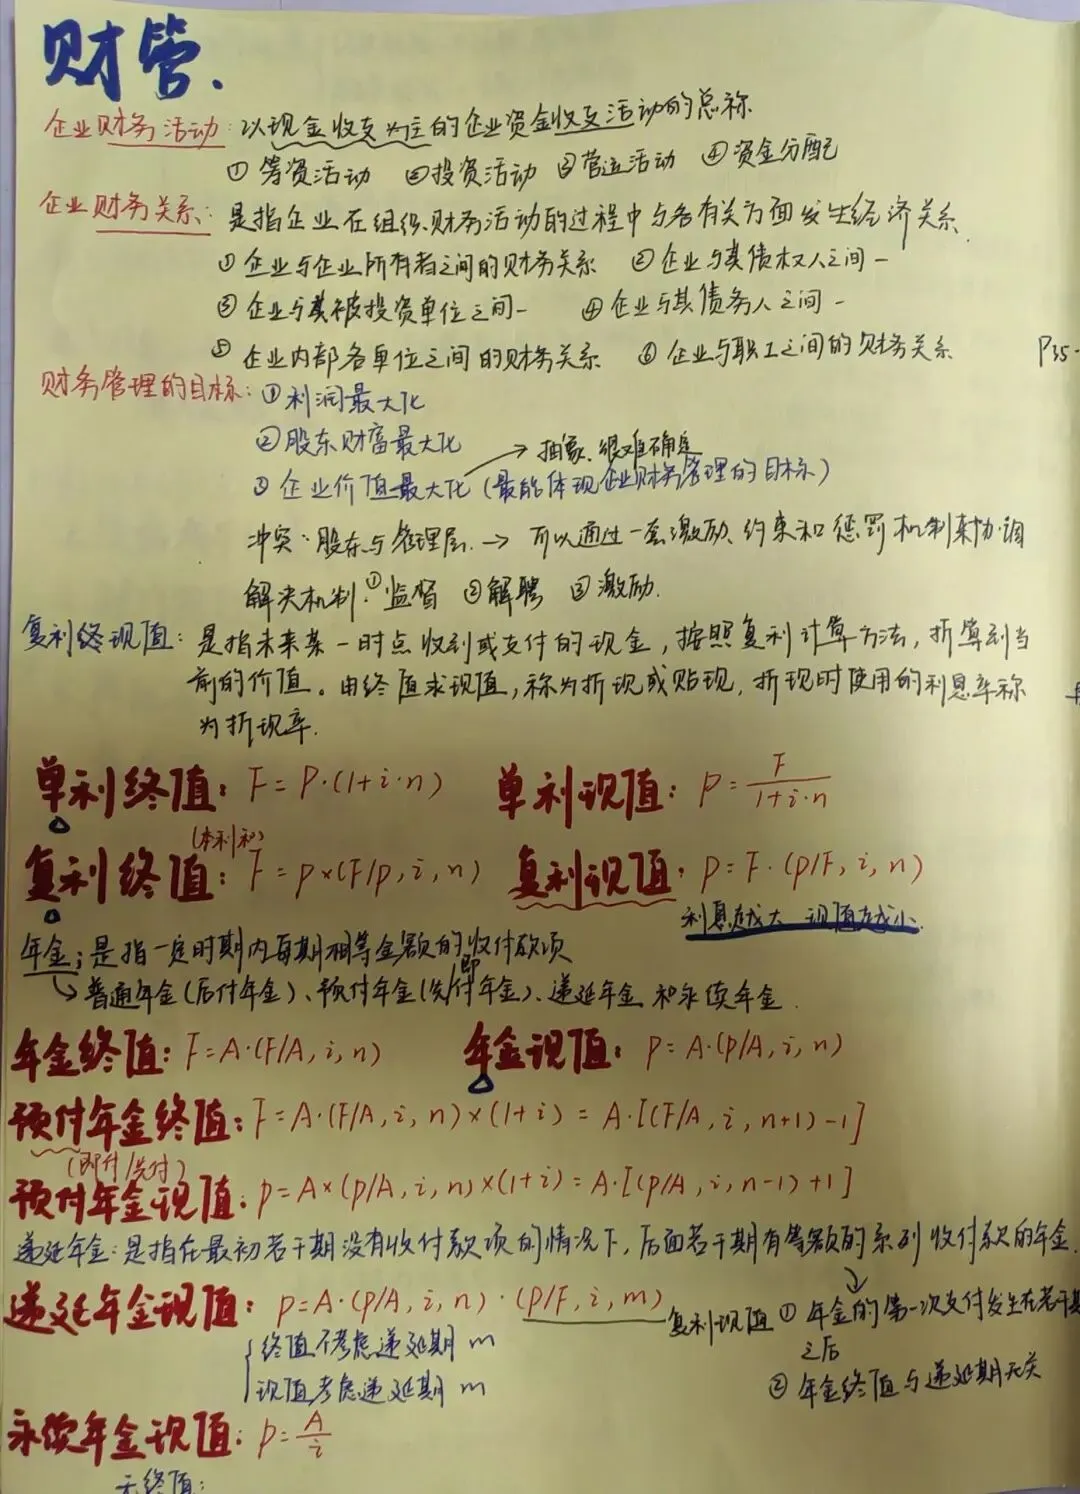 财管.
企业财务活动：以现金收支为主的企业资金收支活动的总称
① 筹资活动 ②投资活动 ③营运活动 ④资金分配
企业财务关系：是指企业在组织财务活动的过程中与各有关方面发生经济关系.
① 企业与企业所有者之间的财务关系 ② 企业与其债权人之间－
③ 企业与其被投资单位之间－ ④ 企业与其债务人之间－
⑤ 企业内部各单位之间的财务关系 ⑥ 企业与职工之间的财务关系 P35-
财务管理的目标：①利润最大化
②股东财富最大化
→ 抽象、很难确定
③ 企业价值最大化（最能体现企业财务管理的目标）
冲突：股东与管理层. → 可以通过一套激励、约束和惩罚机制来协调
解决机制：①监督 ②解聘 ③激励.
复利终现值：是指未来某一时点收到或支付的现金，按照复利计算方法，折算到当
前的价值。由终值求现值，称为折现或贴现，折现时使用的利息率称
为折现率.
单利终值：F=P·(1+i·n) 单利现值：P=F/1+i·n
(本利和)
复利终值：F=P×(F/P,i,n) 复利现值：P=F·(P/F,i,n)
利息越大 现值越小.
年金；是指一定时期内每期相等金额的收付款项
即
↳ 普通年金(后付年金)、预付年金(先付年金)、递延年金 和永续年金.
年金终值：F=A·(F/A,i,n) 年金现值：P=A·(P/A,i,n)
预付年金终值：F=A·(F/A,i,n)×(1+i)=A·[(F/A,i,n+1)-1]
(即付/先付)
预付年金现值：P=A×(P/A,i,n)×(1+i)=A·[(P/A,i,n-1)+1]
递延年金：是指在最初若干期没有收付款项的情况下，后面若干期有等额的系列收付款的年金.
递延年金现值：P=A·(P/A,i,n)·(P/F,i,m) 复利现值 ① 年金的第一次支付发生在若干期
之后
终值不考虑递延期 m
现值考虑递延期 m
② 年金终值与递延期无关
永续年金现值：P=A/i
无终值：